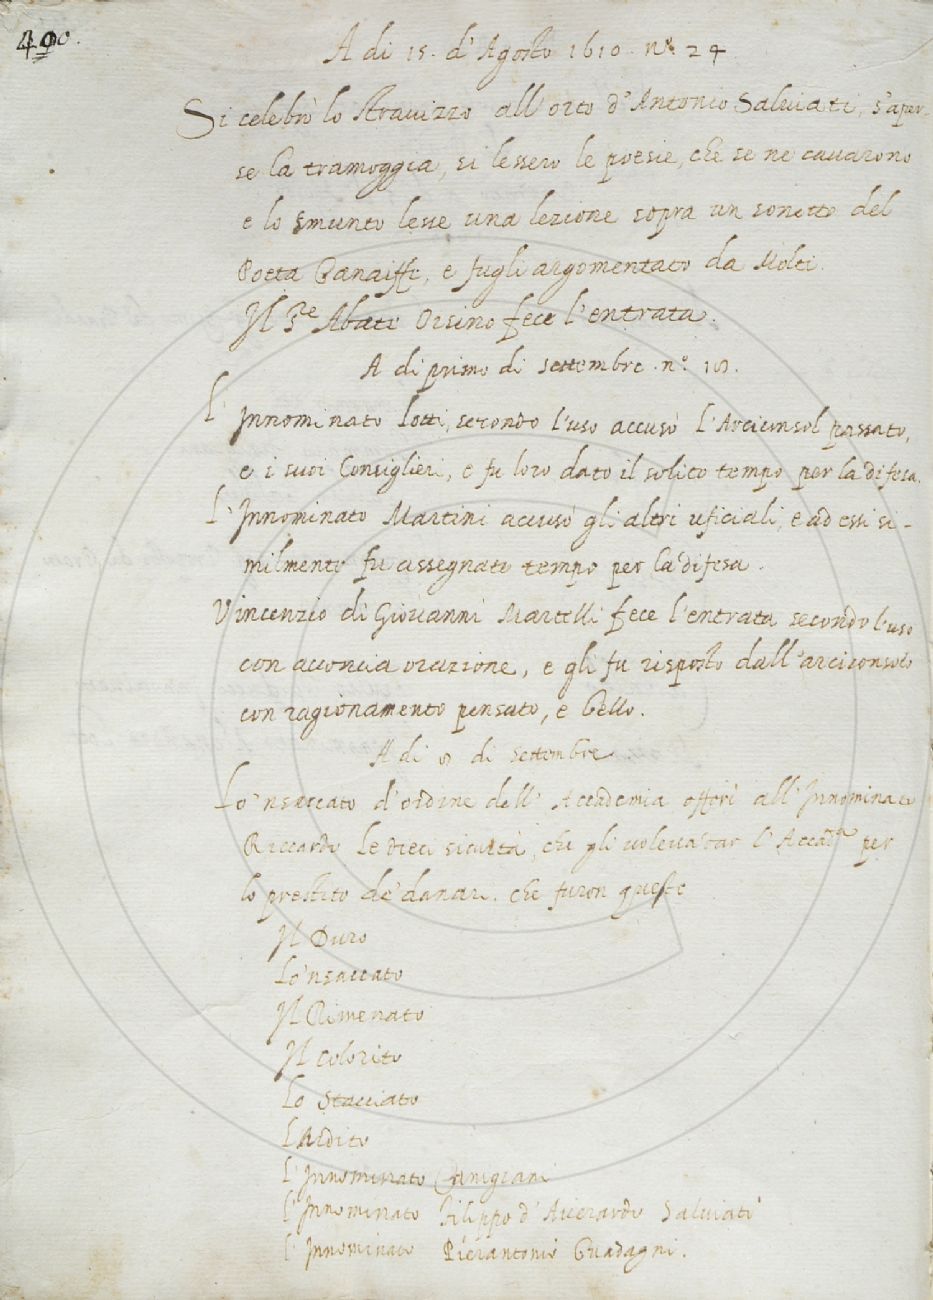 490.
A di 15. d'Agosto 1610. n.° 24
Si celebrò lo stravizzo all'orto d'Antonio Salviati, s'aper-
se la tramoggia, si lessero le poesie, che se ne cavarono
e lo smunto lesse una lezione sopra un sonetto del
Poeta, e fugli argomentato da Molti.
Il S.re Abate Orsino fece l'entrata.
A di primo di settembre. n.°
L'Innominato Lotti, secondo l'uso accusò l'Arciconsol passato,
e i suoi Consiglieri, e fu loro dato il solito tempo per la difesa.
L'Innominato Martini accusò gli altri uficiali, e ad essi si-
milmente fu assegnato tempo per la difesa.
Vincenzio di Giovanni Martelli fece l'entrata secondo l'uso
con acconcia orazione, e gli fu risposto dall'arciconsolo
con ragionamento pensato, e bello.
A di 8 di settembre
Lo'nsaccato d'ordine dell'Accademia offerì all'Innominato
Riccardi le dieci sicurtà, che gli voleva dar l'Accad.a per
lo prestito de' danari. che furon queste
Il Duro
Lo'nsaccato
Il Rimenato
Il Colorito
Lo Stacciato
L'Ardito
L'Innominato Canigiani
L'Innominato Filippo d'Averardo Salviati
L'Innominato Pierantonio Guadagni.